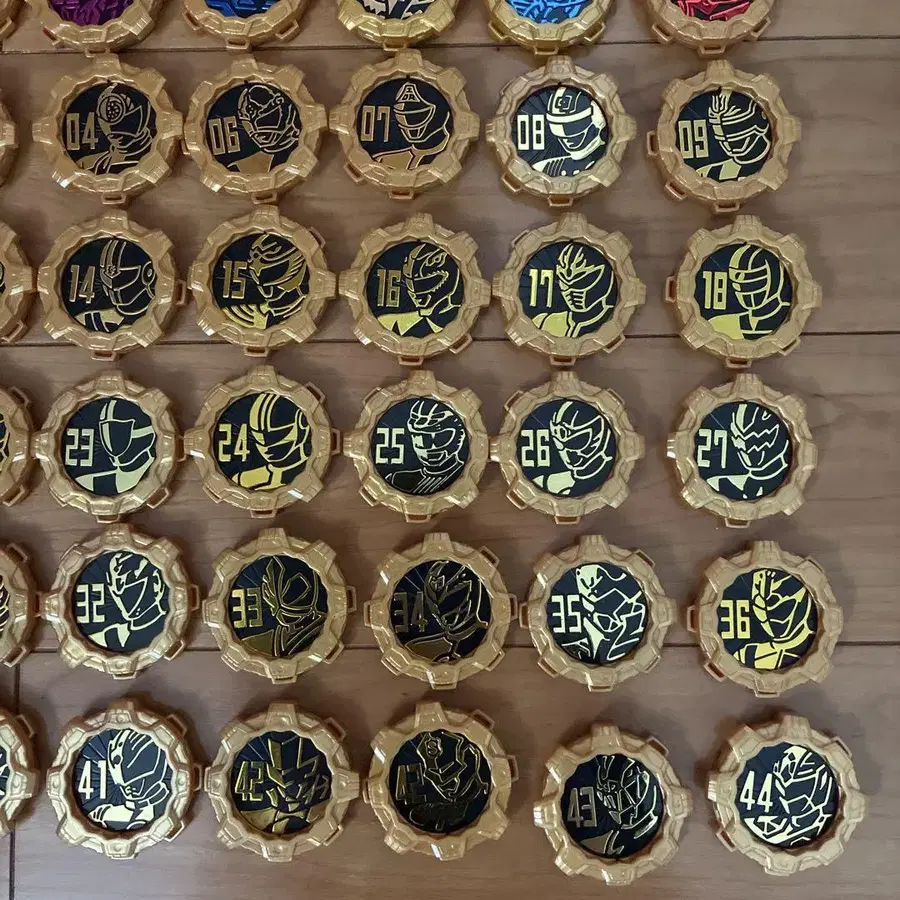 04 06 07 08 09
14 15 16 17 18
23 24 25 26 27
32 33 34 35 36
41 42 42 43 44